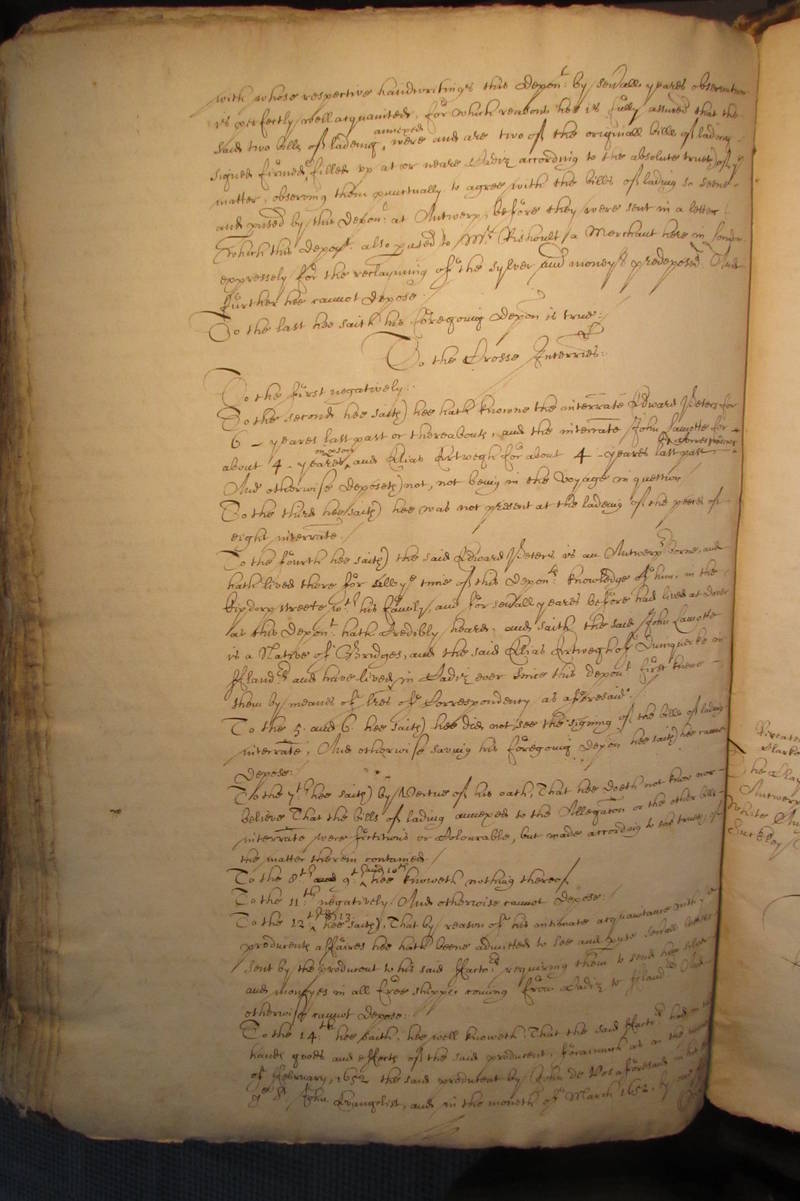 with whose respective handwritings this depon:t by severall yeares observation
is perfectly well acquainted, for which reasons hee is fully assured that the
said two bills of lading annexed, were and are two of the originall bills of lading
signed firmed, filled up at or neare Cadiz according to the absolute trueth of ye
matter, observing them punctually to agree with the bills of lading so seene
and perused by this depon:t at Antwerp, before they were sent in a letter
which this depon:t also perused to Mr: a Merchant here in London
expressely for the reclayming of the sylver and moneys predeposed. And
further hee cannot depose:/
To the last hee saith his foregoing depon is true:/
To the Crosse Interries:
To the first negatively:
To the second hee saith) hee hath knowne the interrate Edward Peters for
6 - yeares last past or thereabouts, and the interrate John Lamotte for
about 4 - yeares, and Elias Artwegh for about 4 - yeares last past
And otherwise deposeth) not, not being in the voyage in question
To the third hee saith) hee was not present at the lading of the peeces of
eight interrate:/
To the fourth hee saith) the said Edward Peters is an Antwerper borne, and
hath lived there for all ye time of this depon:ts knowledge of him, in the
streete wth his family, and for severall yeares before had lived at
as this depon:t hath credibly heard, and saith the said John Lamotte
is a Native of Bridges, and the said Elias Artwegh of Dunquerke in
Flandrs and have lived in Cadiz ever since this depont first knew
them by meanes of lres of Correspondency as aforesaid:/
To the 5. and 6. hee saith) hee did not see the signing of the bills of lading
interrate, And otherwise saving his foregoing depon hee saith) hee cannot
depose:
To the 7th: hee saith) by vertue of his oath, That hee doeth not know nor
beleeve That the bills of lading annexed to the Allegation or the other bills
interrate were fictitious or Colourable, but made according to the trueth of
the matter therein contained:/
To the 8th 9th and 10th hee knoweth nothing thereof
To the 11:th negatively. And otherwise cannot depose:
To the 12th and 13 hee saith), That by reason of his intimate acquaintance with ye
producents affaires hee hath beene admitted to see and peruse severall letters
sent by the producent to his said Factors requiring them to send his sylver
and moneyes in all free shipps coming from Cadiz to Flandrs And
otherwise cannot depose:
To the 14:th hee saith, hee well knoweth, That the said Factors had in their
hands goods and effects of the said producent, forasmuch as in the moneth
of February, 1652 the said producent by John de Vos aforesaid in the
St John Evangelist, and in the moneth of March 1652, by